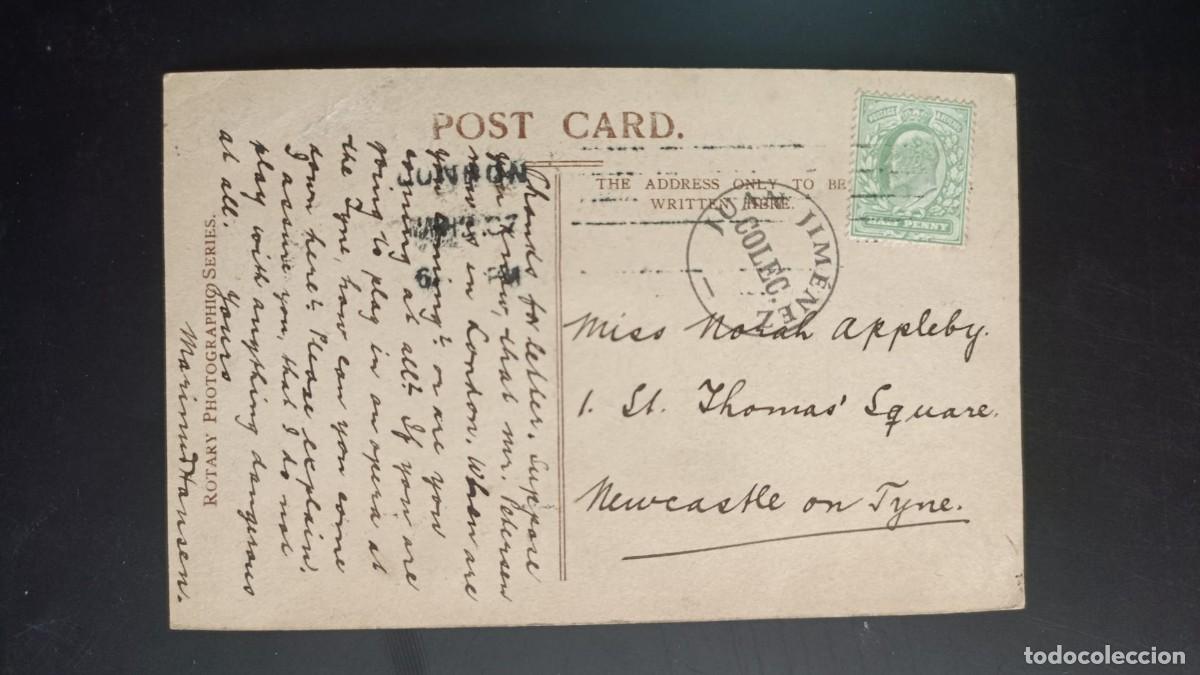 POST CARD.
THE ADDRESS ONLY TO BE
WRITTEN HERE.
POSTAGE & REVENUE
HALF PENNY
LONDON
MAR
07
6
PM
JUAN JIMÉNEZ
COLEC.
Miss Norah Appleby.
1. St. Thomas' Square.
Newcastle on Tyne.
Thanks for letter. Suppose
you know, that Mr. Petersen
now is in London. When are
you coming? or are you
coming at all? If you are
going to play in an opera at
the Tyne, how can you come
down here? Please explain.
I assure you, that I do not
play with anything dangerous
at all.
yours
Hansen.
ROTARY PHOTOGRAPHIC SERIES.
todocoleccion